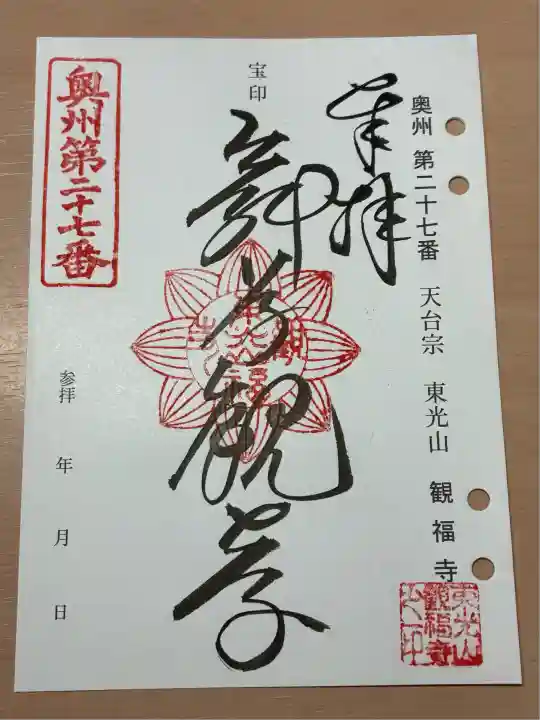 奥州 第二十七番 天台宗 東光山 観福寺
奉拝
宝印
聖観音
奥州第二十七番
参拝 年 月 日
東光山
観福寺
之印